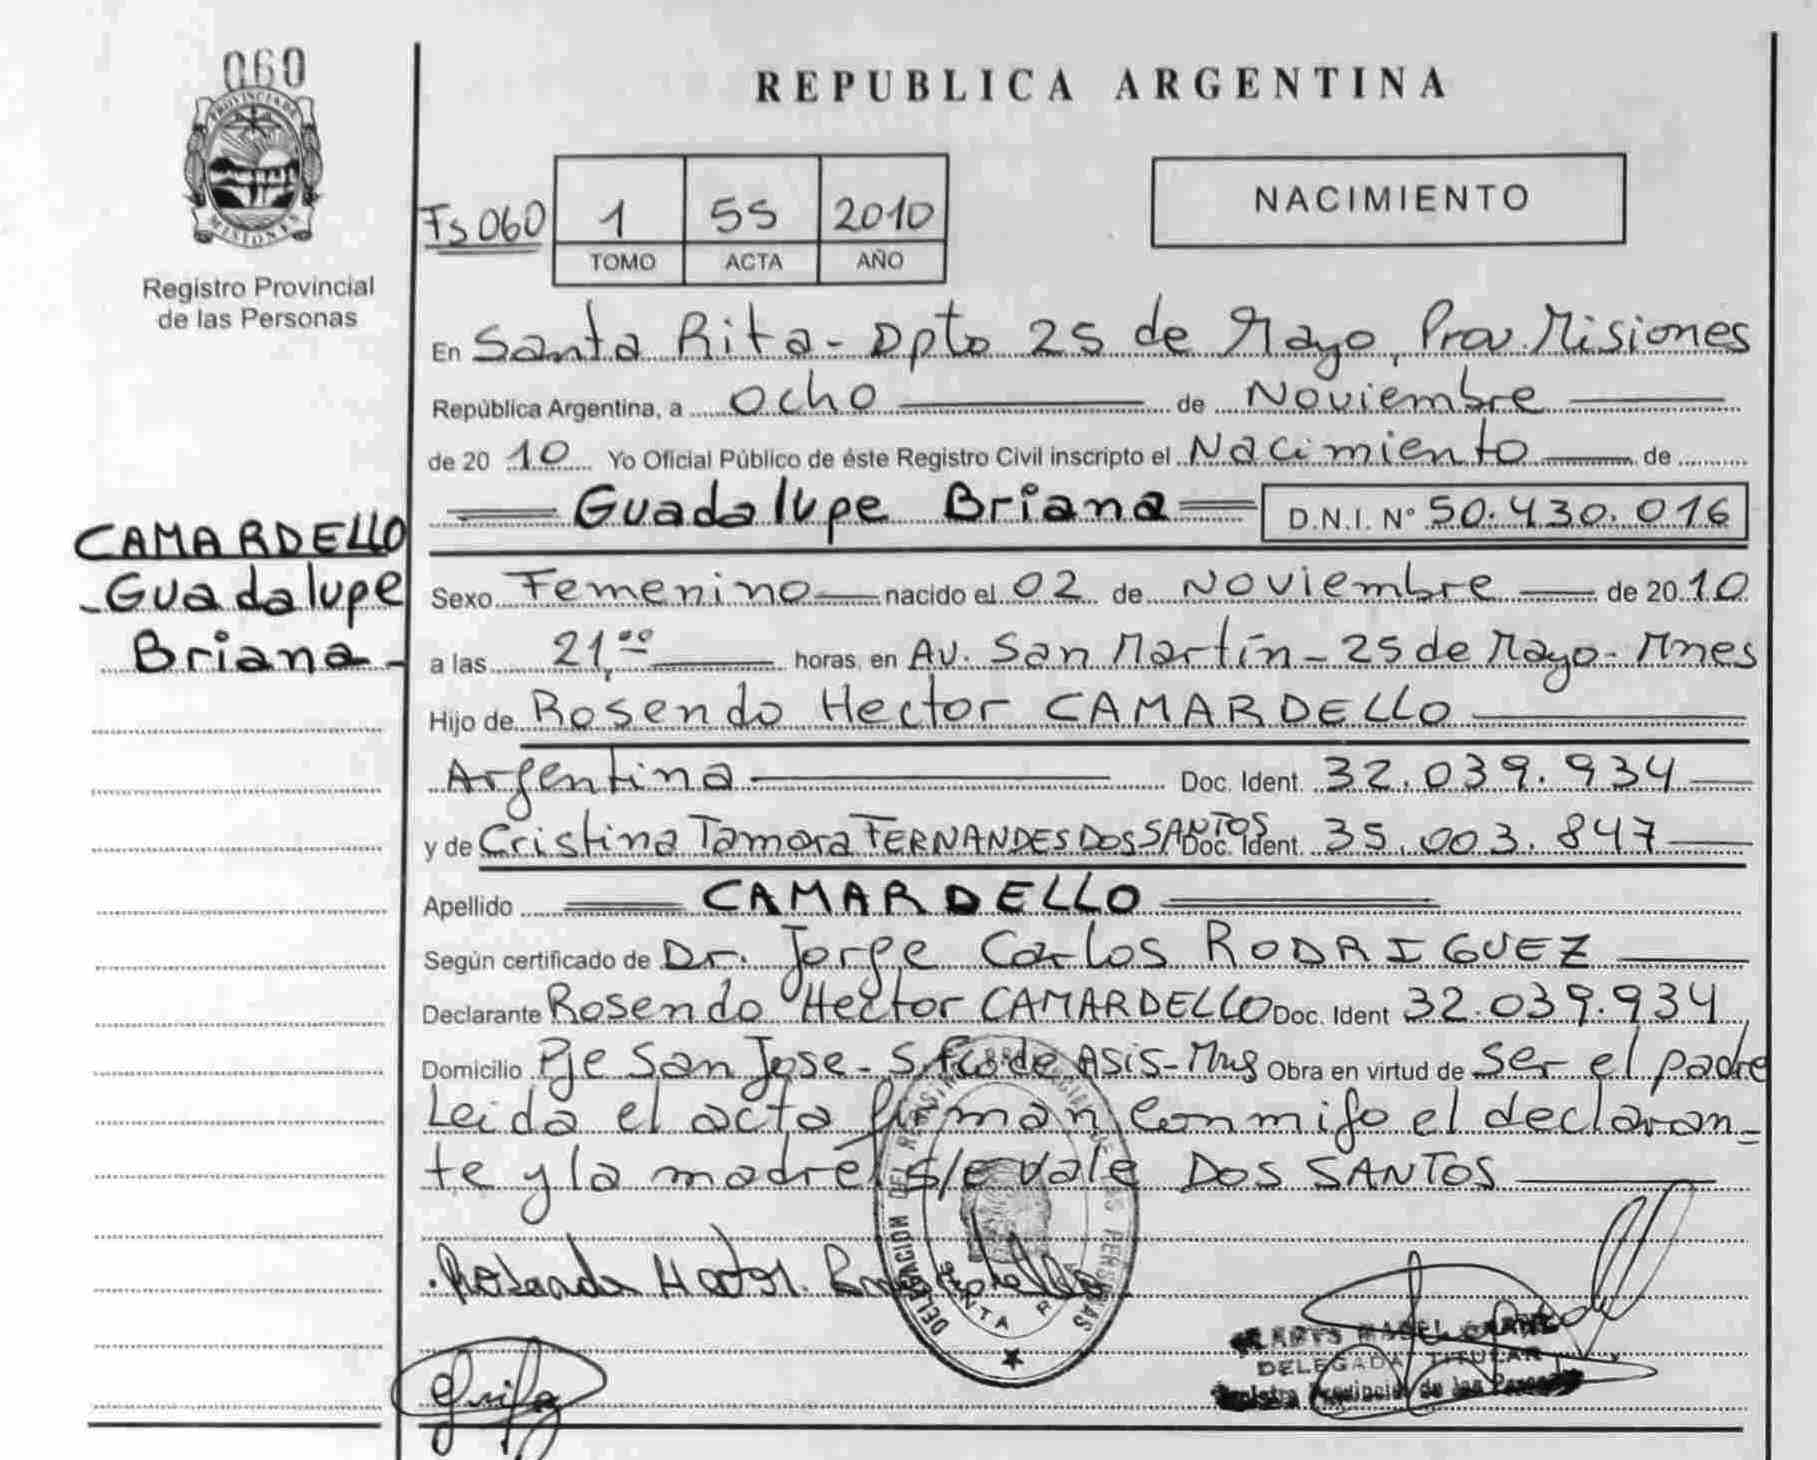 060
PROVINCIA DE
MISIONES
Registro Provincial
de las Personas
REPUBLICA ARGENTINA
Fs 060
1 55 2010
TOMO ACTA AÑO
NACIMIENTO
En Santa Rita - Dpto 25 de Mayo, Prov. Misiones
República Argentina, a ocho de Noviembre
de 20 10 Yo Oficial Público de éste Registro Civil inscripto el Nacimiento de
Guadalupe Briana D.N.I. N° 50.430.016
CAMARDELLO
- Guadalupe
Briana -
Sexo Femenino nacido el 02 de Noviembre de 20 10
a las 21,00 horas, en Av. San Martín - 25 de Mayo - Mnes
Hijo de Rosendo Hector CAMARDELLO
Argentina Doc. Ident. 32.039.934
y de Cristina Tamara FERNANDES DOS SANTOS Doc. Ident. 35.003.847
Apellido CAMARDELLO
Según certificado de Dr. Jorge Carlos RODRIGUEZ
Declarante Rosendo Hector CAMARDELLO Doc. Ident 32.039.934
Domicilio Pje San Jose - S. Fco de Asis - Mns Obra en virtud de ser el padre
Leida el acta firman conmigo el declaran-
te y la madre s/e vale DOS SANTOS
Rosendo Hector
DELEGACION DEL REGISTRO DE LAS PERSONAS
SANTA
MABEL
DELEGADA TITULAR
Registro Provincial de las Personas